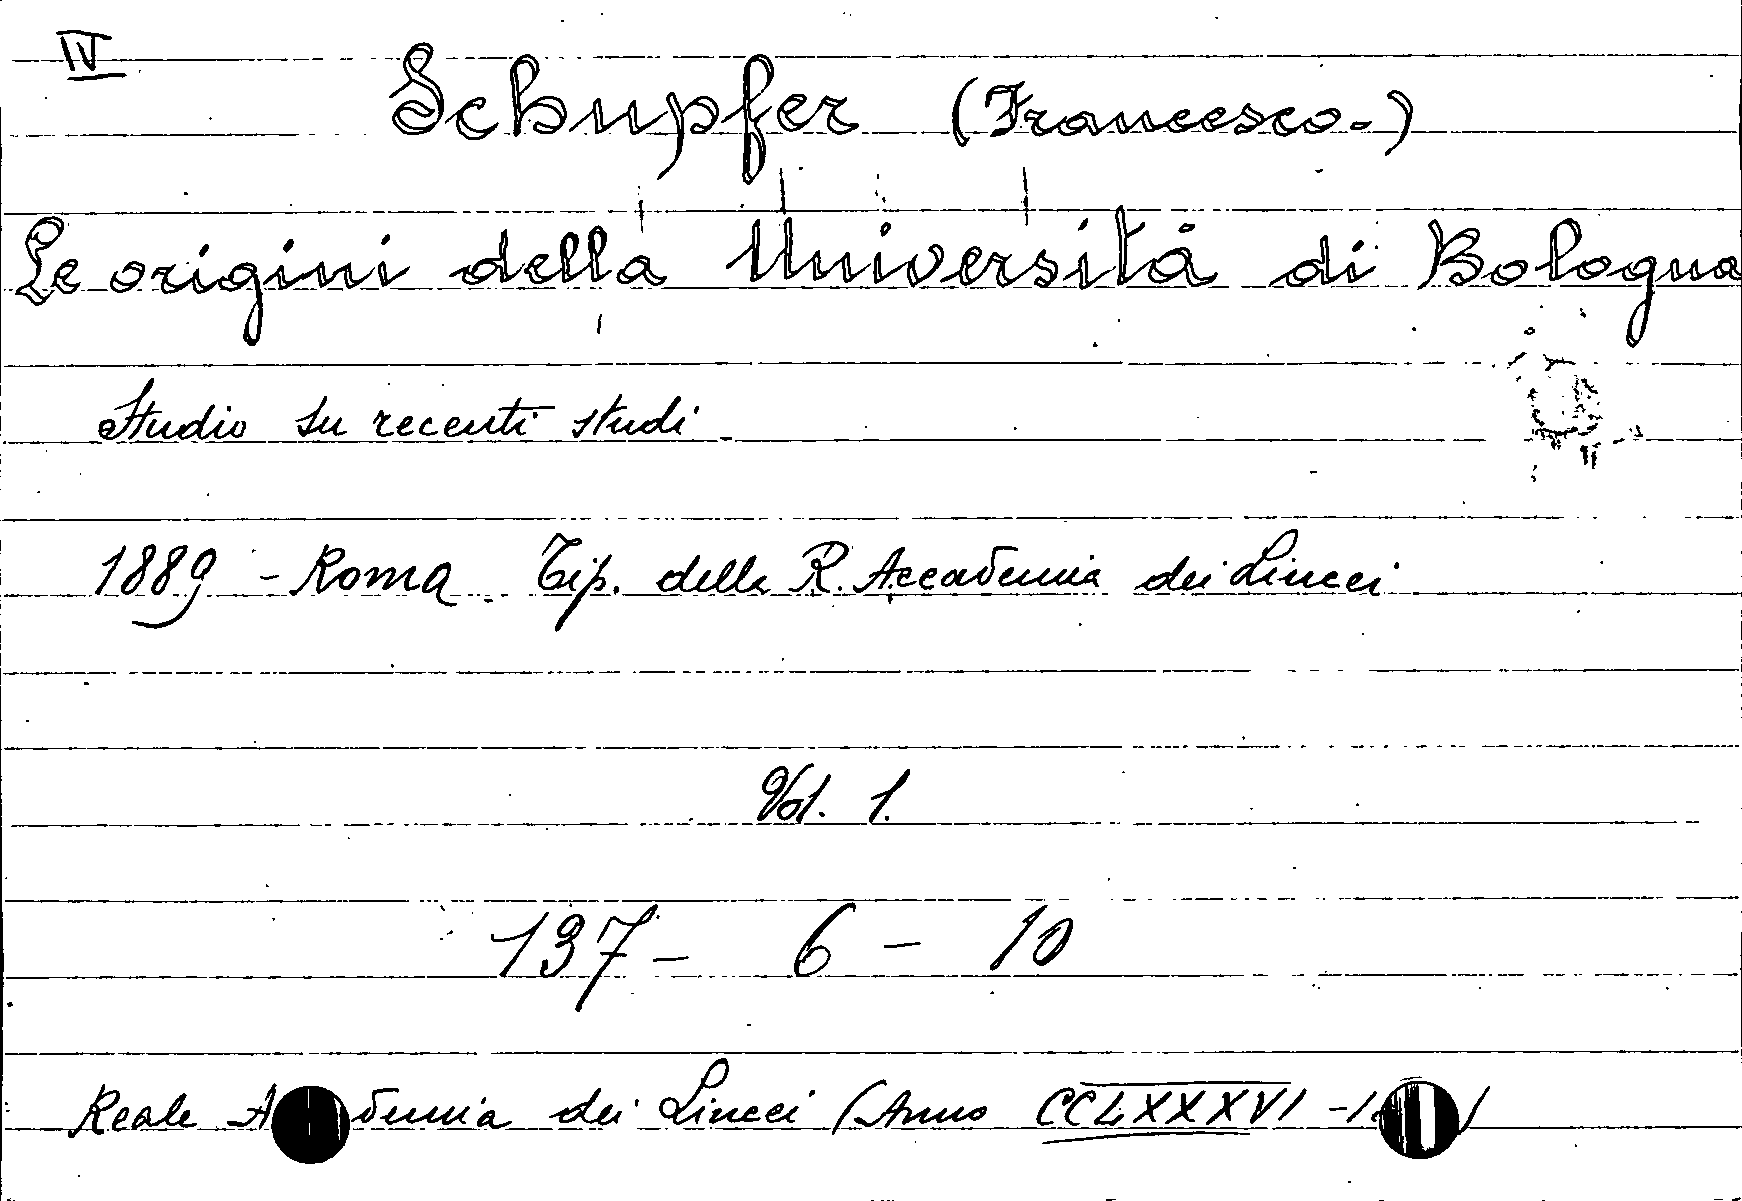 IV
Schupfer (Francesco-)
Le origini della Università di Bologna
Studio su recenti studi -
1889 - Roma - Tip. della R. Accademia dei Lincei
Vol. 1.
137 - 6 - 10
Reale dei Lincei (Anno CCLXXXVI -